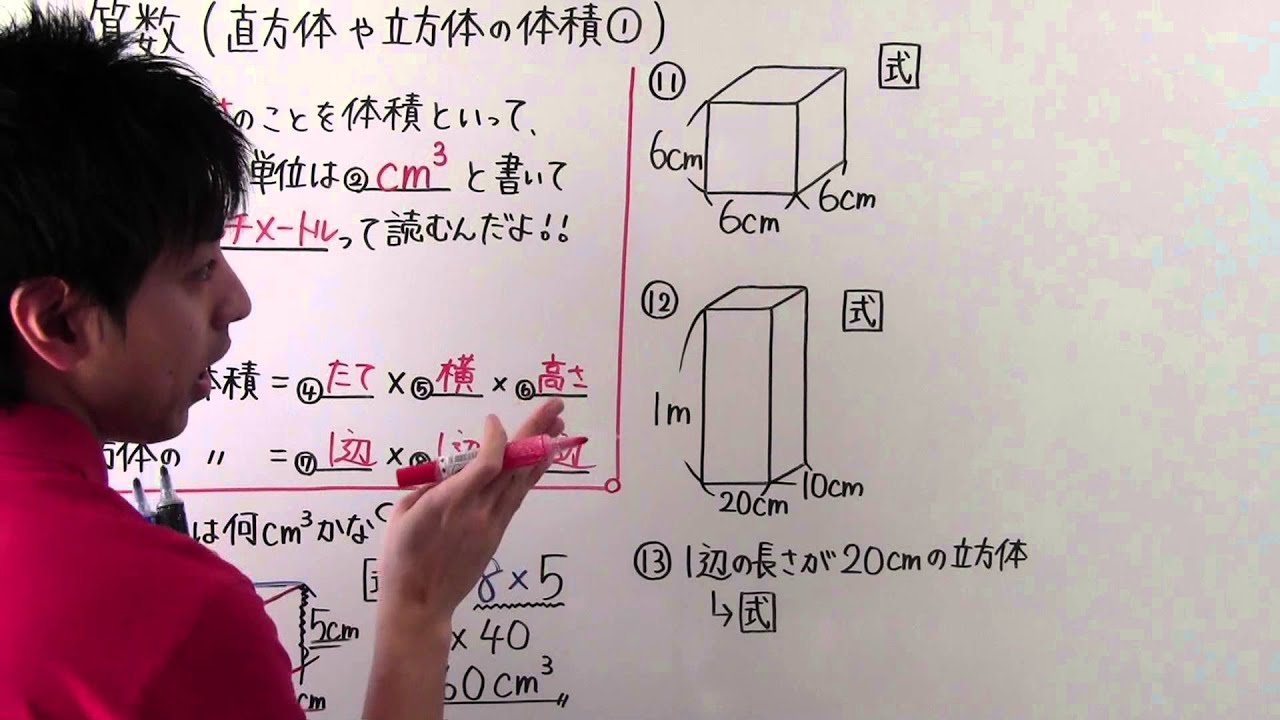 算数(直方体や立方体の体積①)
のことを体積といって、
単位は②cm³と書いて
チメートルって読むんだよ!!
体積=④たて×⑤横×⑥高さ
方体の 〃 =⑦1辺×⑧1辺 辺
は何cm³かな
8×5
×40
60cm³〃
5cm
cm
⑪
式
6cm
6cm
6cm
⑫
式
1m
20cm
10cm
⑬1辺の長さが20cmの立方体
↳式